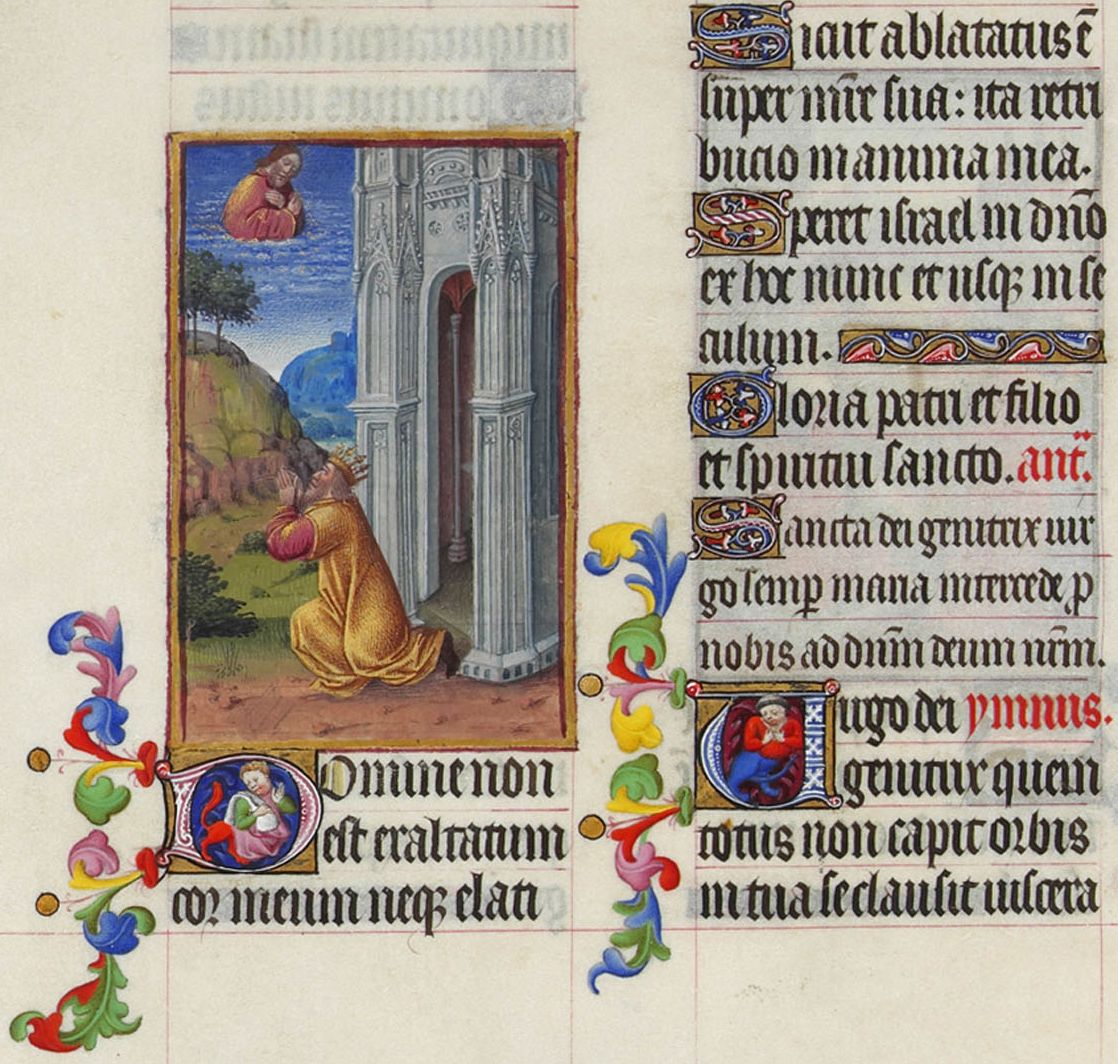 Domine non
est exaltatum
cor meum neqꝫ elati
Sicut ablatatus ē
super mr̄e sua: ita retri
bucio in anima mea.
Speret israel in dn̄o
ex hoc nunc et usqꝫ in se
culum.
Gloria patri et filio
et spiritui sancto. ant̄.
Sancta dei genitrix uir
go semꝑ maria intercede ꝓ
nobis ad dn̄m deum nr̄m.
Uirgo dei ymnus.
genitrix quem
totus non capit orbis
in tua se clausit uiscera